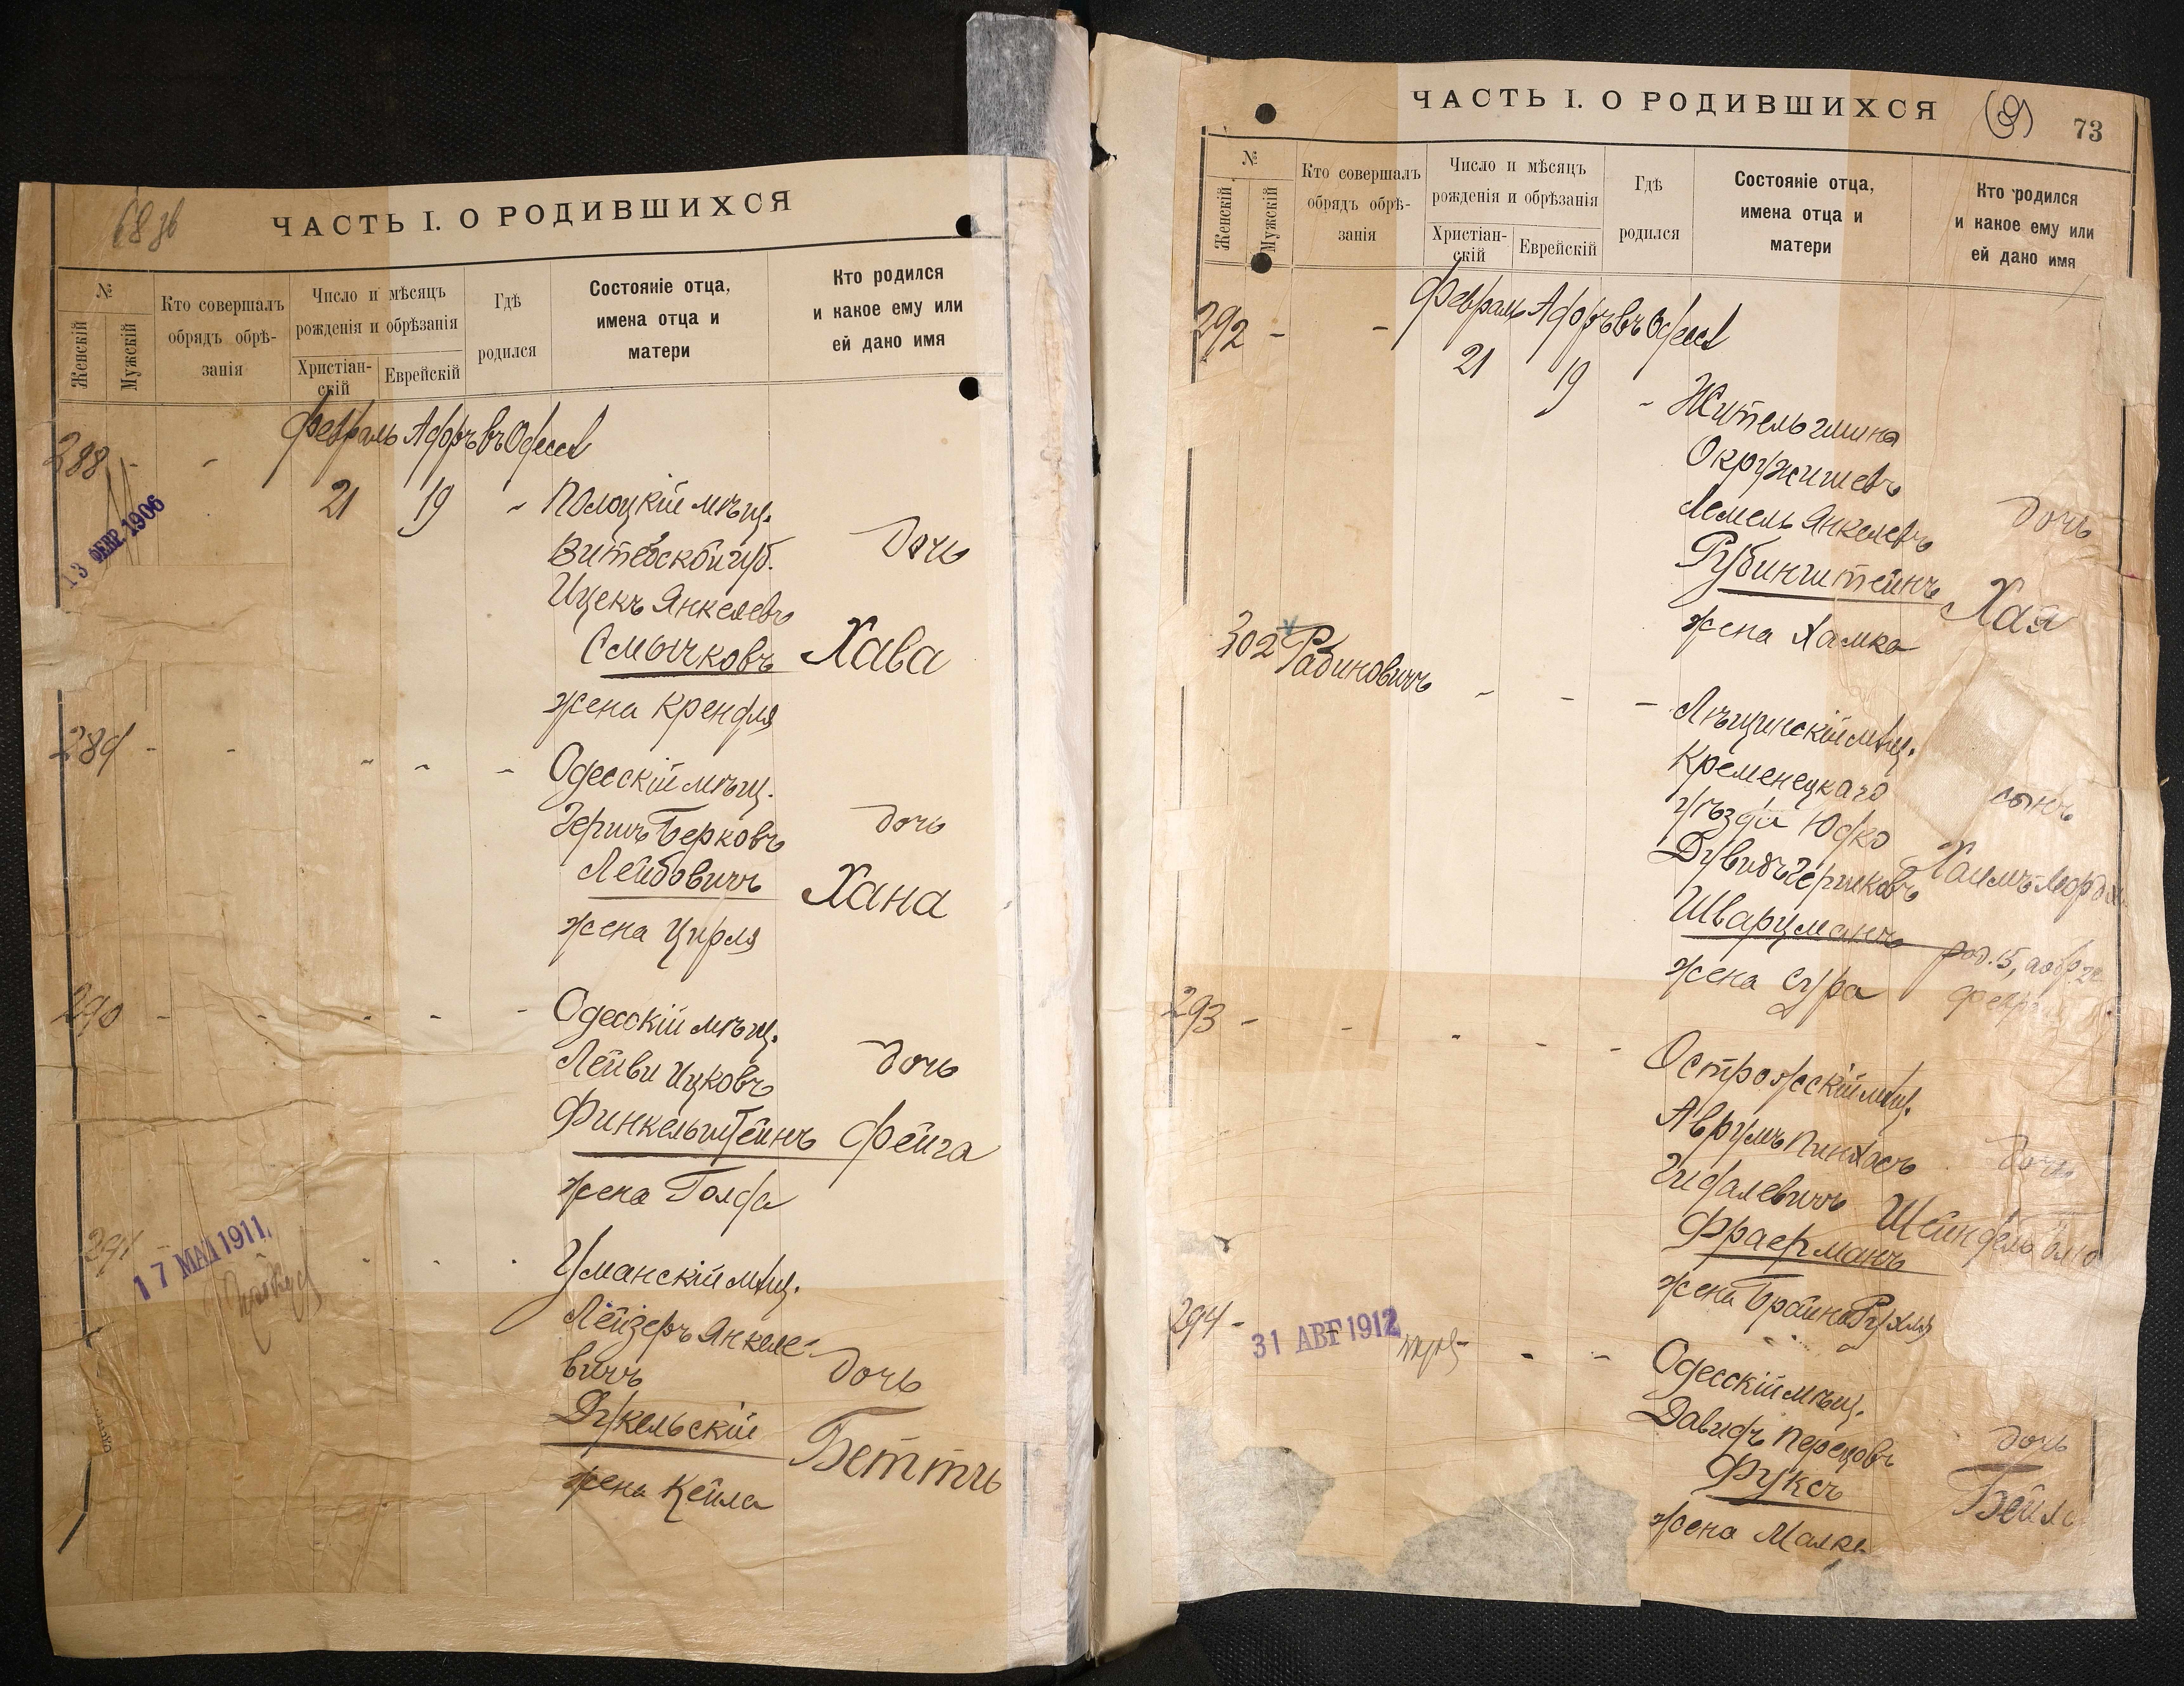 68 зв
ЧАСТЬ I. О РОДИВШИХСЯ
№
Женскій
Мужскій
Кто совершалъ
обрядъ обрѣ-
занія
Число и мѣсяцъ
рожденія и обрѣзанія
Христіан-
скій
Еврейскій
Гдѣ
родился
Состояніе отца,
имена отца и
матери
Кто родился
и какое ему или
ей дано имя
Февраль Адоръ въ Одессѣ
288 - -
13 ФЕВР. 1906
21 19 - Полоцкій мѣщ.
Витебской губ.
дочь
Ицекъ Янкелевъ
Смычковъ Хава
жена Крендля
289 - - - - - Одесскій мѣщ.
Гершъ Берковъ дочь
Лейбовичъ Хана
жена Цирля
290 - - - - - Одесскій мѣщ.
Лейви Ицковъ дочь
Финкельштейнъ Фейга
жена Голда
291 - - - -
17 МАЯ 1911
Уманскій мѣщ.
Лейзеръ Янкеле-
вичъ дочь
Дукельскій
Беттъ
жена Кейла
ЧАСТЬ I. О РОДИВШИХСЯ
73
№
Женскій
Мужскій
Кто совершалъ
обрядъ обрѣ-
занія
Число и мѣсяцъ
рожденія и обрѣзанія
Христіан-
скій
Еврейскій
Гдѣ
родился
Состояніе отца,
имена отца и
матери
Кто родился
и какое ему или
ей дано имя
Февраль Адоръ въ Одессѣ
292 - -
21 19 - Житель гмина
Окружишевъ
Лемель Янкелевъ дочь
Рубинштейнъ Хая
жена Хамка
302 Рабиновичъ - - -
мѣщ.
Кременецкаго
уѣзда Юдко сынъ
Дувидъ Гершковъ Хаимъ
Шварцманъ
жена Сура род. 15,
293 - - - - - Острожскій мѣщ.
Аврумъ Пинхасъ дочь
Фраерманъ
жена Брайна Рухля
294 -
31 АВГ 1912
- - Одесскій мѣщ.
Давидъ Перецовъ дочь
Фуксъ Бейла
жена Малка